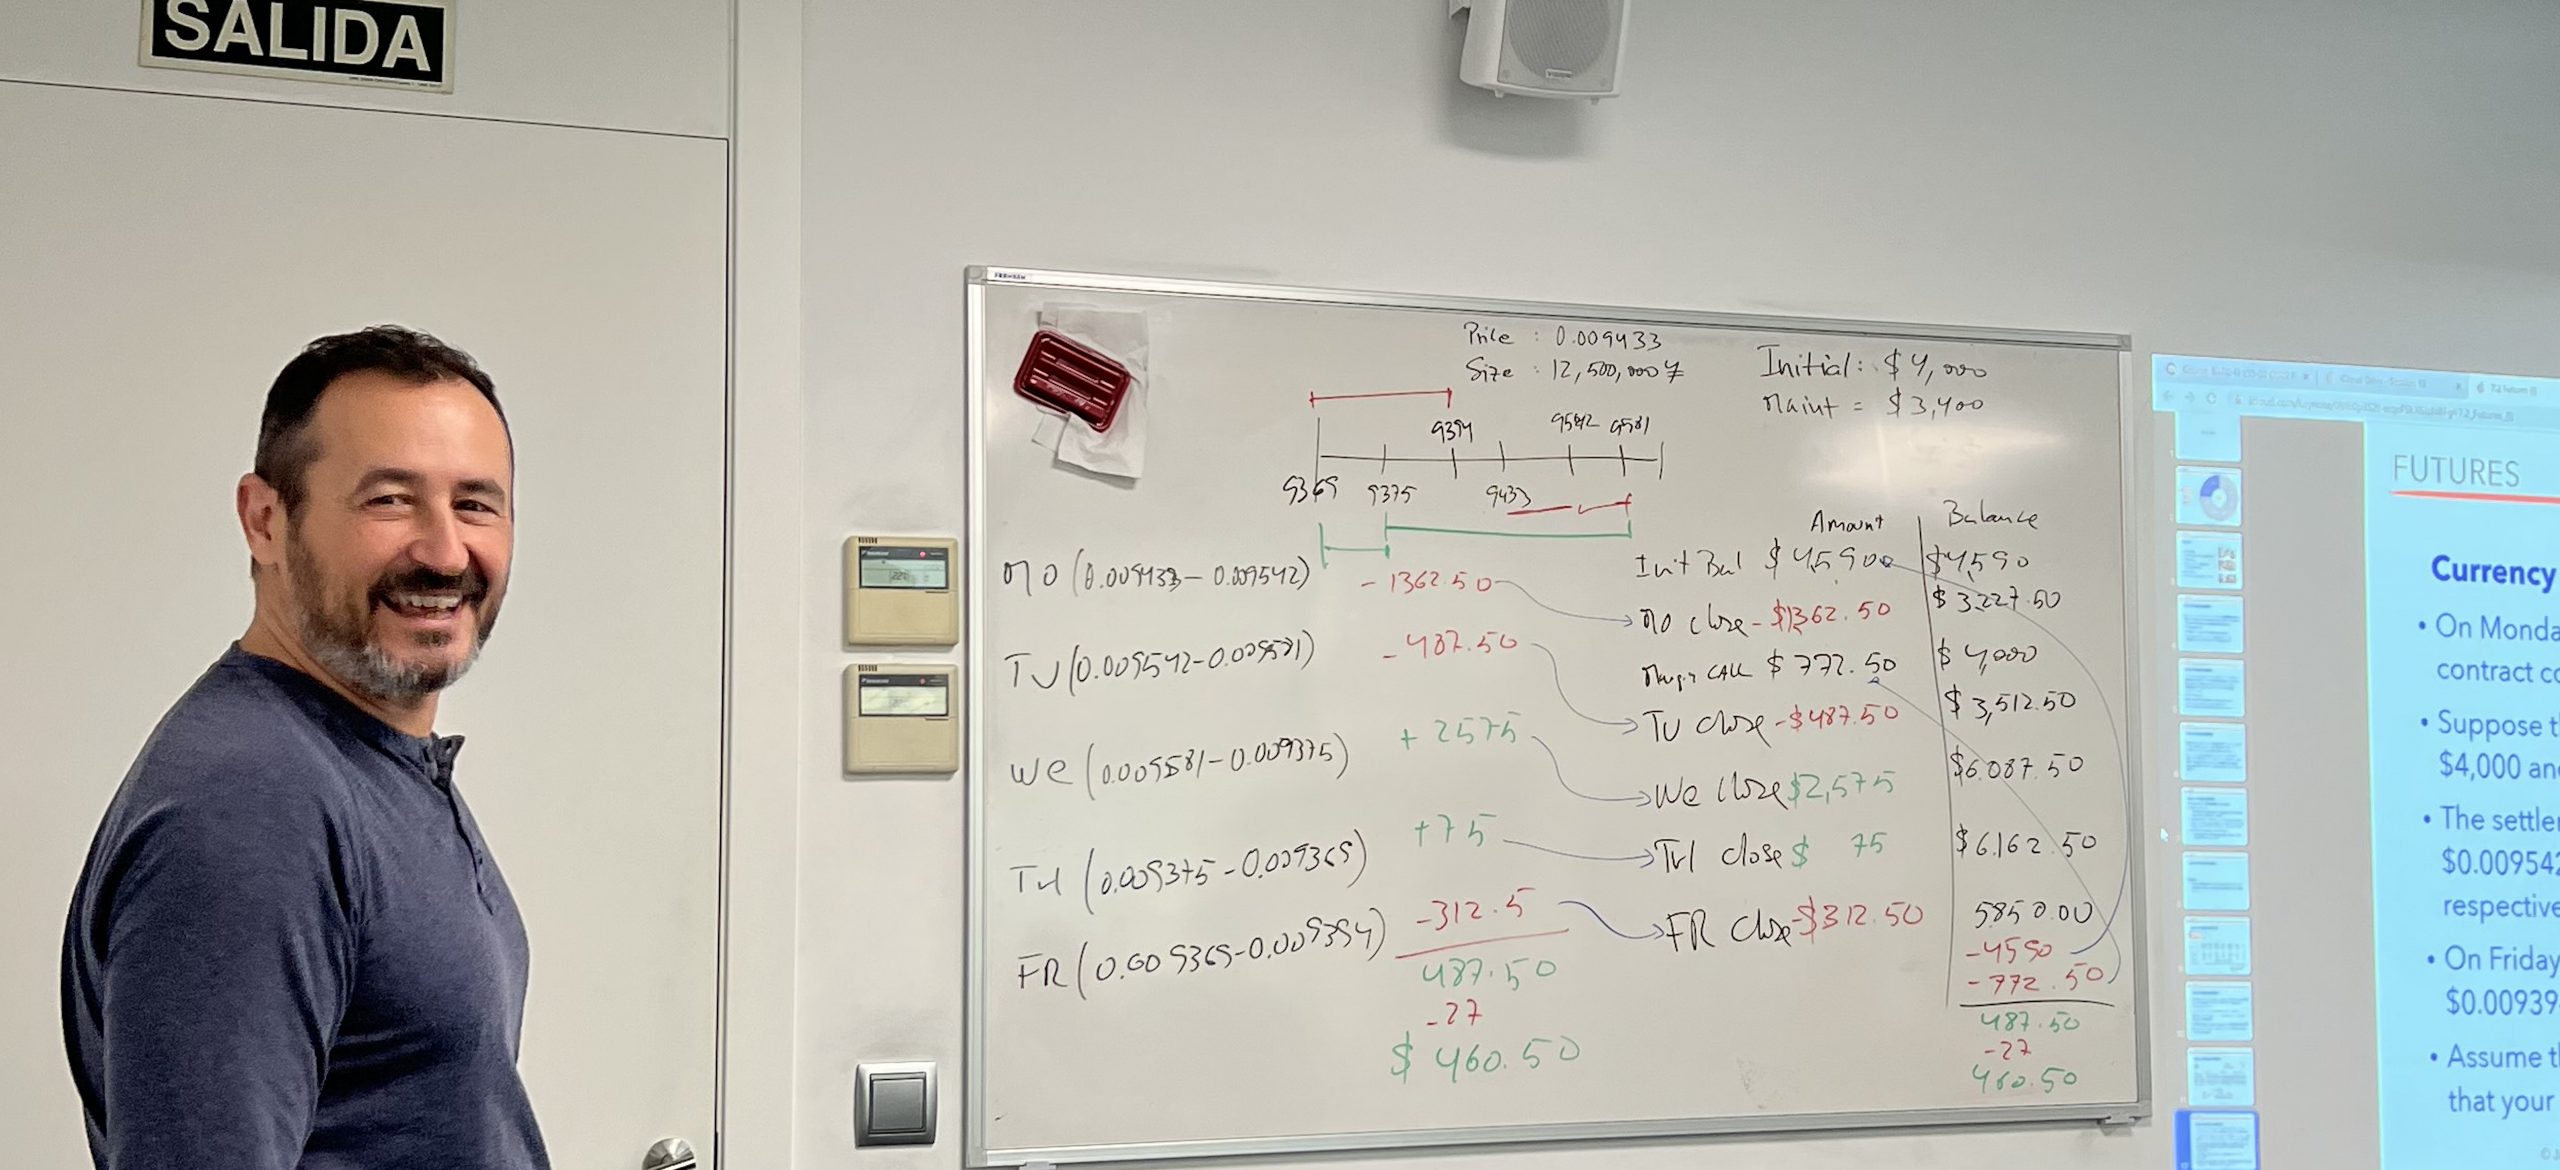 SALIDA
Price : 0.009433
Size : 12,500,000 ¥
Initial: $4,000
Maint = $3,400
9394 9542 9581
9369 9375 9433
Amount Balance
MO (0.009433-0.009542) -1362.50
TU (0.009542-0.009581) -487.50
We (0.009581-0.009375) +2575
TH (0.009375-0.009369) +75
FR (0.009369-0.009394) -312.5
487.50
-27
$ 460.50
Init Bal $4,590 $4,590
MO close -$1362.50 $3,227.50
Margin CALL $772.50 $4,000
TU close -$487.50 $3,512.50
We close $2,575 $6.087.50
TH close $ 75 $6.162.50
FR close -$312.50 5850.00
-4590
-772.50
487.50
-27
460.50
FUTURES
Currency
• On Monda
contract co
• Suppose t
$4,000 an
• The settle
$0.009542
respective
• On Friday
$0.00939
• Assume t
that your